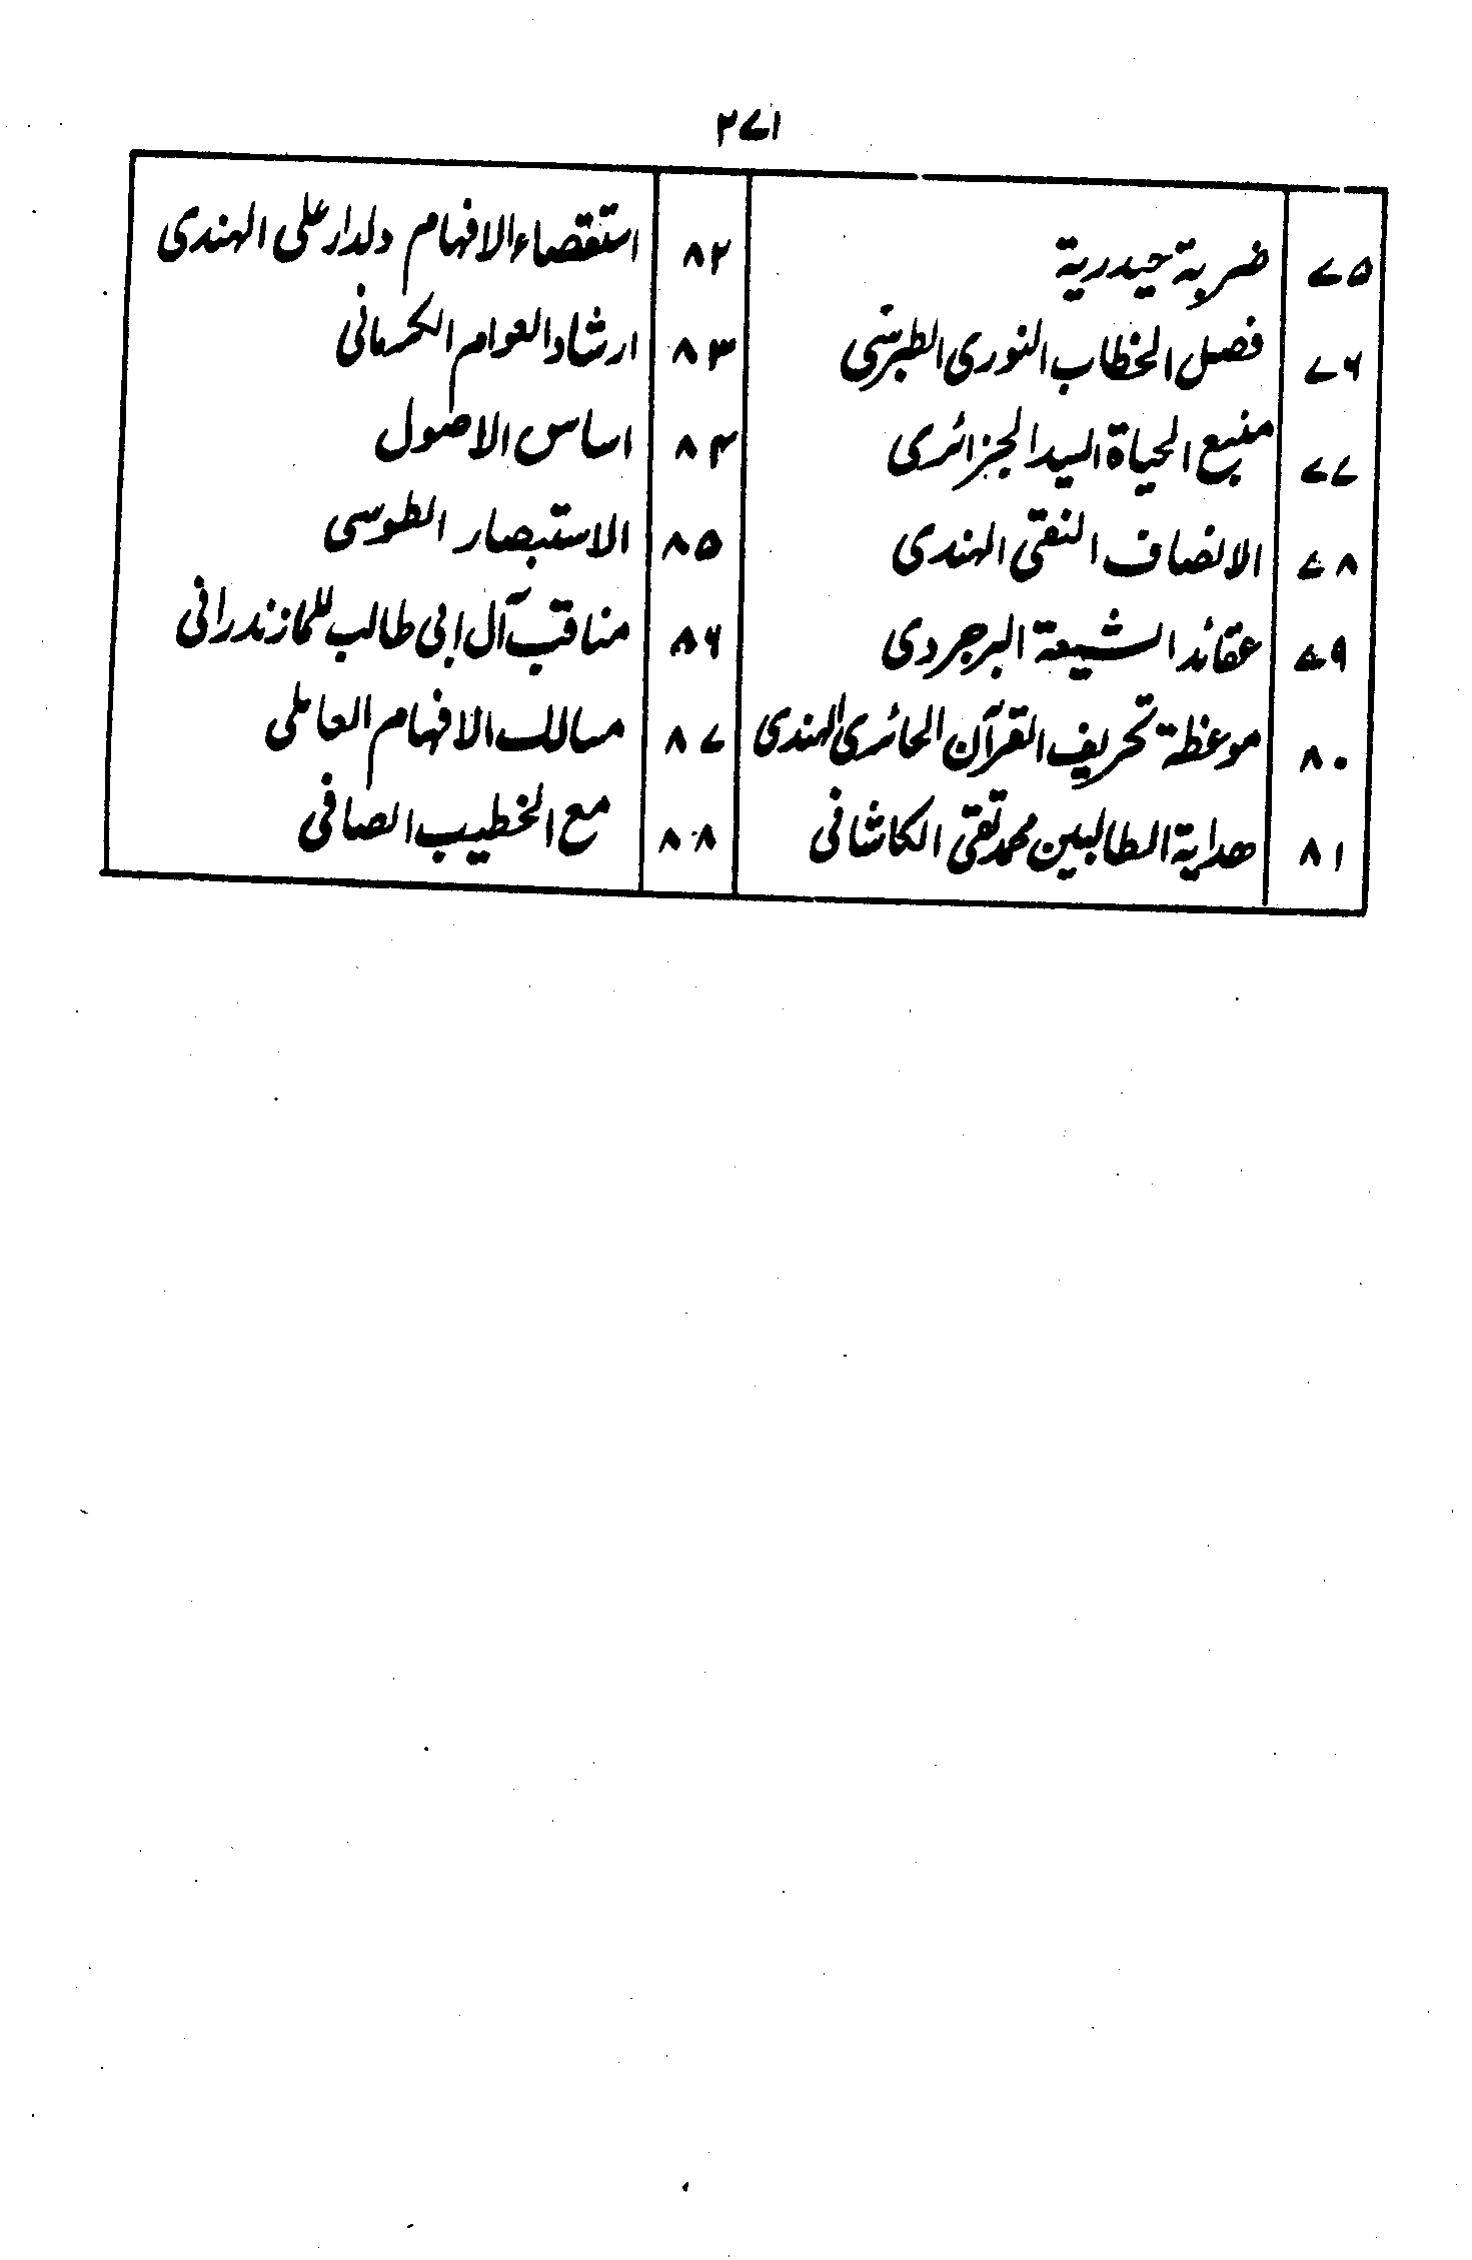 ۲۷۱
۷۵ ضربة حيدرية
۷۶ فصل الخطاب النوری الطبرسی
۷۷ منبع الحياة السيد الجزائری
۷۸ الانصاف النقی الهندی
۷۹ عقائد الشيعة البرجردی
۸۰ موعظة تحريف القرآن الحائری الهندی
۸۱ هداية الطالبين محمد تقی الكاشانی
۸۲ استقصاء الافهام دلدار علی الهندی
۸۳ ارشاد العوام الكرمانی
۸۴ اساس الاصول
۸۵ الاستبصار الطوسی
۸۶ مناقب آل ابی طالب للمازندرانی
۸۷ مسالك الافهام العاملی
۸۸ مع الخطيب الصافی